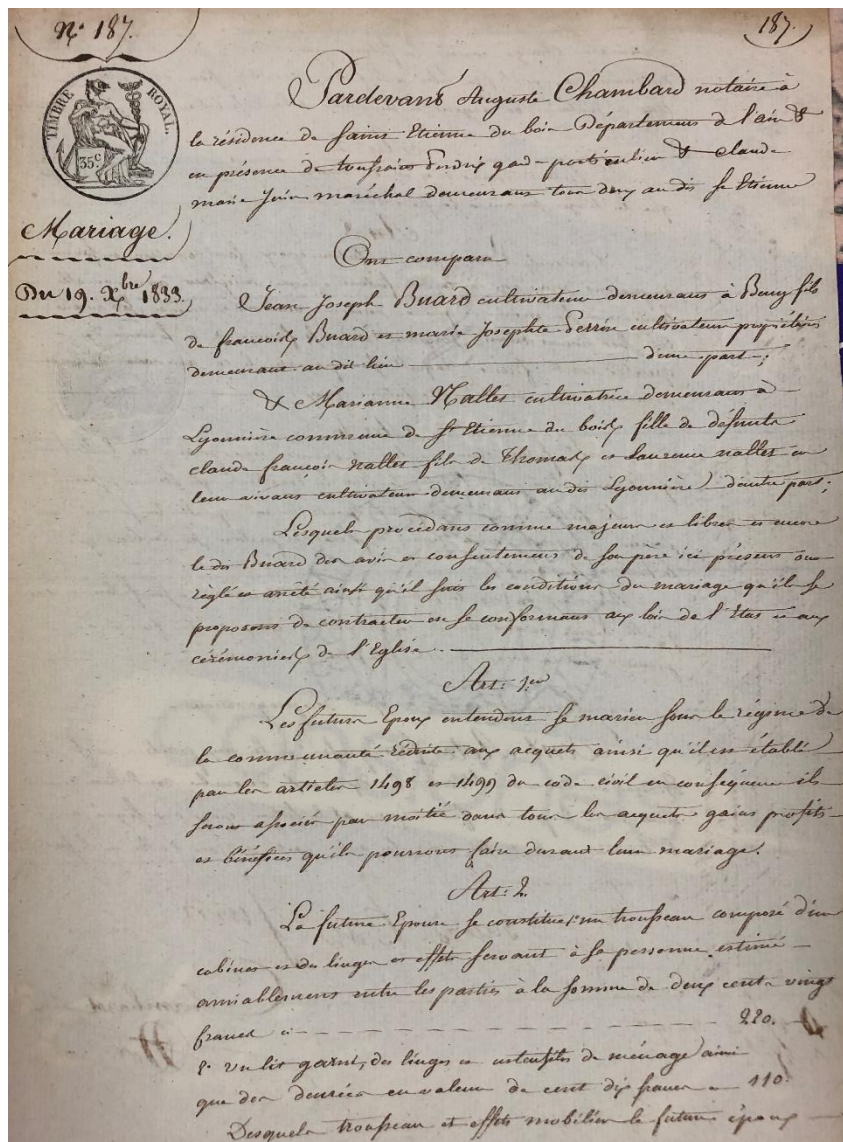 N° 187.
187.
TIMBRE ROYAL.
35 c
Mariage.
Du 19. Xbre 1833.
Pardevant Auguste Chambard notaire à
la résidence de Saint Etienne du bois Département de l'ain &
en présence de toussaint gad-particulier & claude
marie Juin maréchal demeurant tous deux au dit St Etienne
Ont comparu
Jean Joseph Buard cultivateur demeurant à Beny fils
de françois Buard et marie Josephte Perrin cultivateurs propriétaires
demeurant au dit lieu d'une part;
& Marianne Nallet cultivatrice demeurant à
Lyonnière commune de St Etienne du bois fille de défunts
claude françois nallet fils de Thomas et laurence nallet en
leur vivant cultivateurs demeurant au dit Lyonnière d'autre part;
Lesquels procédant comme majeurs et libres et encore
le dit Buard des avis et consentement de son père ici présent ont
réglé et arrêté ainsi qu'il suit les conditions du mariage qu'ils se
proposent de contracter en se conformant aux lois de l'Etat et aux
cérémonies de l'Eglise.
Art: 1er
Les futurs Epoux entendent se marier sous le régime de
la communauté réduite aux acquets ainsi qu'il est établi
par les articles 1498 et 1499 du code civil en conséquence ils
seront associés par moitié dans tous les acquets gains profits
et bénéfices qu'ils pourront faire durant leur mariage.
Art: 2.
La future Epouse se constitue 1° un trousseau composé d'un
cabinet et des linges et effets servant à sa personne estimé
amiablement entre les parties à la somme de deux cents vingt
francs ci 220.
2° un lit garni, des linges et ustensiles de ménage ainsi
que des denrées en valeur de cent dix francs 110.
Desquels trousseau et effets mobiliers le futur époux